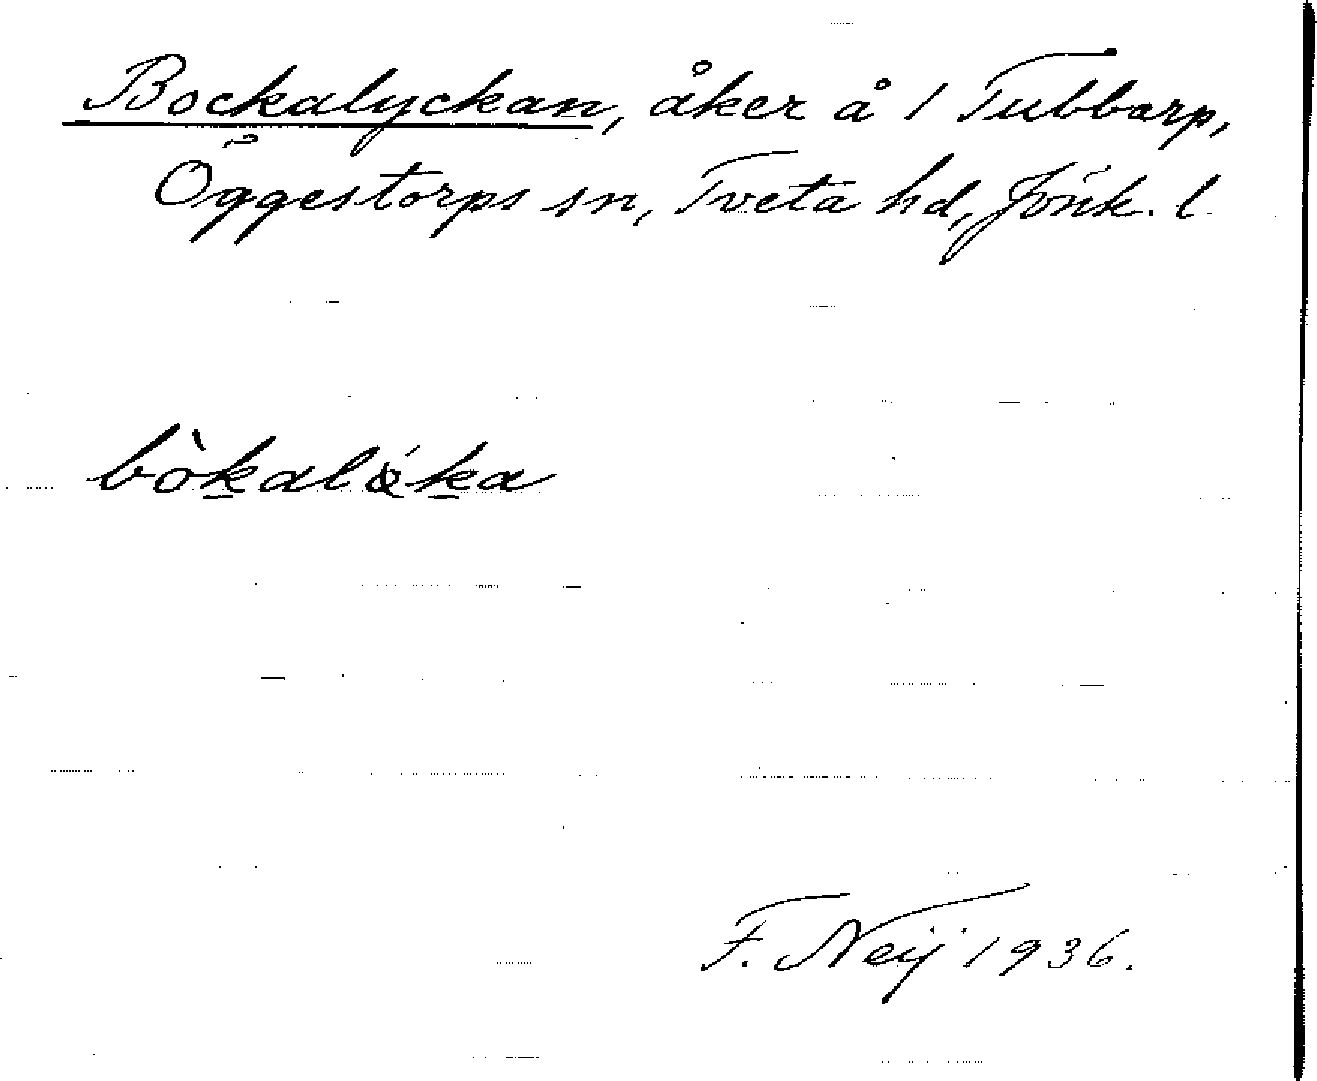 Bockalyckan, åker å 1 Tubbarp,
Öggestorps sn, Tveta hd, Jönk. l.
bòkalǿka
F. Neij 1936.